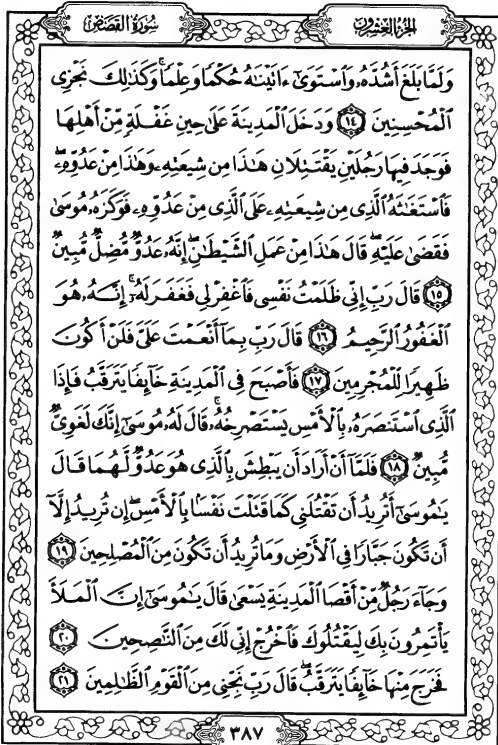 الجزء العشرون
سورة القصص
وَلَمَّا بَلَغَ أَشُدَّهُۥ وَٱسْتَوَىٰٓ ءَاتَيْنَٰهُ حُكْمًا وَعِلْمًا ۚ وَكَذَٰلِكَ نَجْزِى
ٱلْمُحْسِنِينَ ١٤ وَدَخَلَ ٱلْمَدِينَةَ عَلَىٰ حِينِ غَفْلَةٍ مِّنْ أَهْلِهَا
فَوَجَدَ فِيهَا رَجُلَيْنِ يَقْتَتِلَانِ هَٰذَا مِن شِيعَتِهِۦ وَهَٰذَا مِنْ عَدُوِّهِۦ ۖ
فَٱسْتَغَٰثَهُ ٱلَّذِى مِن شِيعَتِهِۦ عَلَى ٱلَّذِى مِنْ عَدُوِّهِۦ فَوَكَزَهُۥ مُوسَىٰ
فَقَضَىٰ عَلَيْهِ ۖ قَالَ هَٰذَا مِنْ عَمَلِ ٱلشَّيْطَٰنِ ۖ إِنَّهُۥ عَدُوٌّ مُّضِلٌّ مُّبِينٌ
١٥ قَالَ رَبِّ إِنِّى ظَلَمْتُ نَفْسِى فَٱغْفِرْ لِى فَغَفَرَ لَهُۥٓ ۚ إِنَّهُۥ هُوَ
ٱلْغَفُورُ ٱلرَّحِيمُ ١٦ قَالَ رَبِّ بِمَآ أَنْعَمْتَ عَلَىَّ فَلَنْ أَكُونَ
ظَهِيرًا لِّلْمُجْرِمِينَ ١٧ فَأَصْبَحَ فِى ٱلْمَدِينَةِ خَآئِفًا يَتَرَقَّبُ فَإِذَا
ٱلَّذِى ٱسْتَنصَرَهُۥ بِٱلْأَمْسِ يَسْتَصْرِخُهُۥ ۚ قَالَ لَهُۥ مُوسَىٰٓ إِنَّكَ لَغَوِىٌّ
مُّبِينٌ ١٨ فَلَمَّآ أَنْ أَرَادَ أَن يَبْطِشَ بِٱلَّذِى هُوَ عَدُوٌّ لَّهُمَا قَالَ
يَٰمُوسَىٰٓ أَتُرِيدُ أَن تَقْتُلَنِى كَمَا قَتَلْتَ نَفْسًۢا بِٱلْأَمْسِ ۖ إِن تُرِيدُ إِلَّآ
أَن تَكُونَ جَبَّارًا فِى ٱلْأَرْضِ وَمَا تُرِيدُ أَن تَكُونَ مِنَ ٱلْمُصْلِحِينَ ١٩
وَجَآءَ رَجُلٌ مِّنْ أَقْصَا ٱلْمَدِينَةِ يَسْعَىٰ قَالَ يَٰمُوسَىٰٓ إِنَّ ٱلْمَلَأَ
يَأْتَمِرُونَ بِكَ لِيَقْتُلُوكَ فَٱخْرُجْ إِنِّى لَكَ مِنَ ٱلنَّٰصِحِينَ ٢٠
فَخَرَجَ مِنْهَا خَآئِفًا يَتَرَقَّبُ ۖ قَالَ رَبِّ نَجِّنِى مِنَ ٱلْقَوْمِ ٱلظَّٰلِمِينَ ٢١
٣٨٧